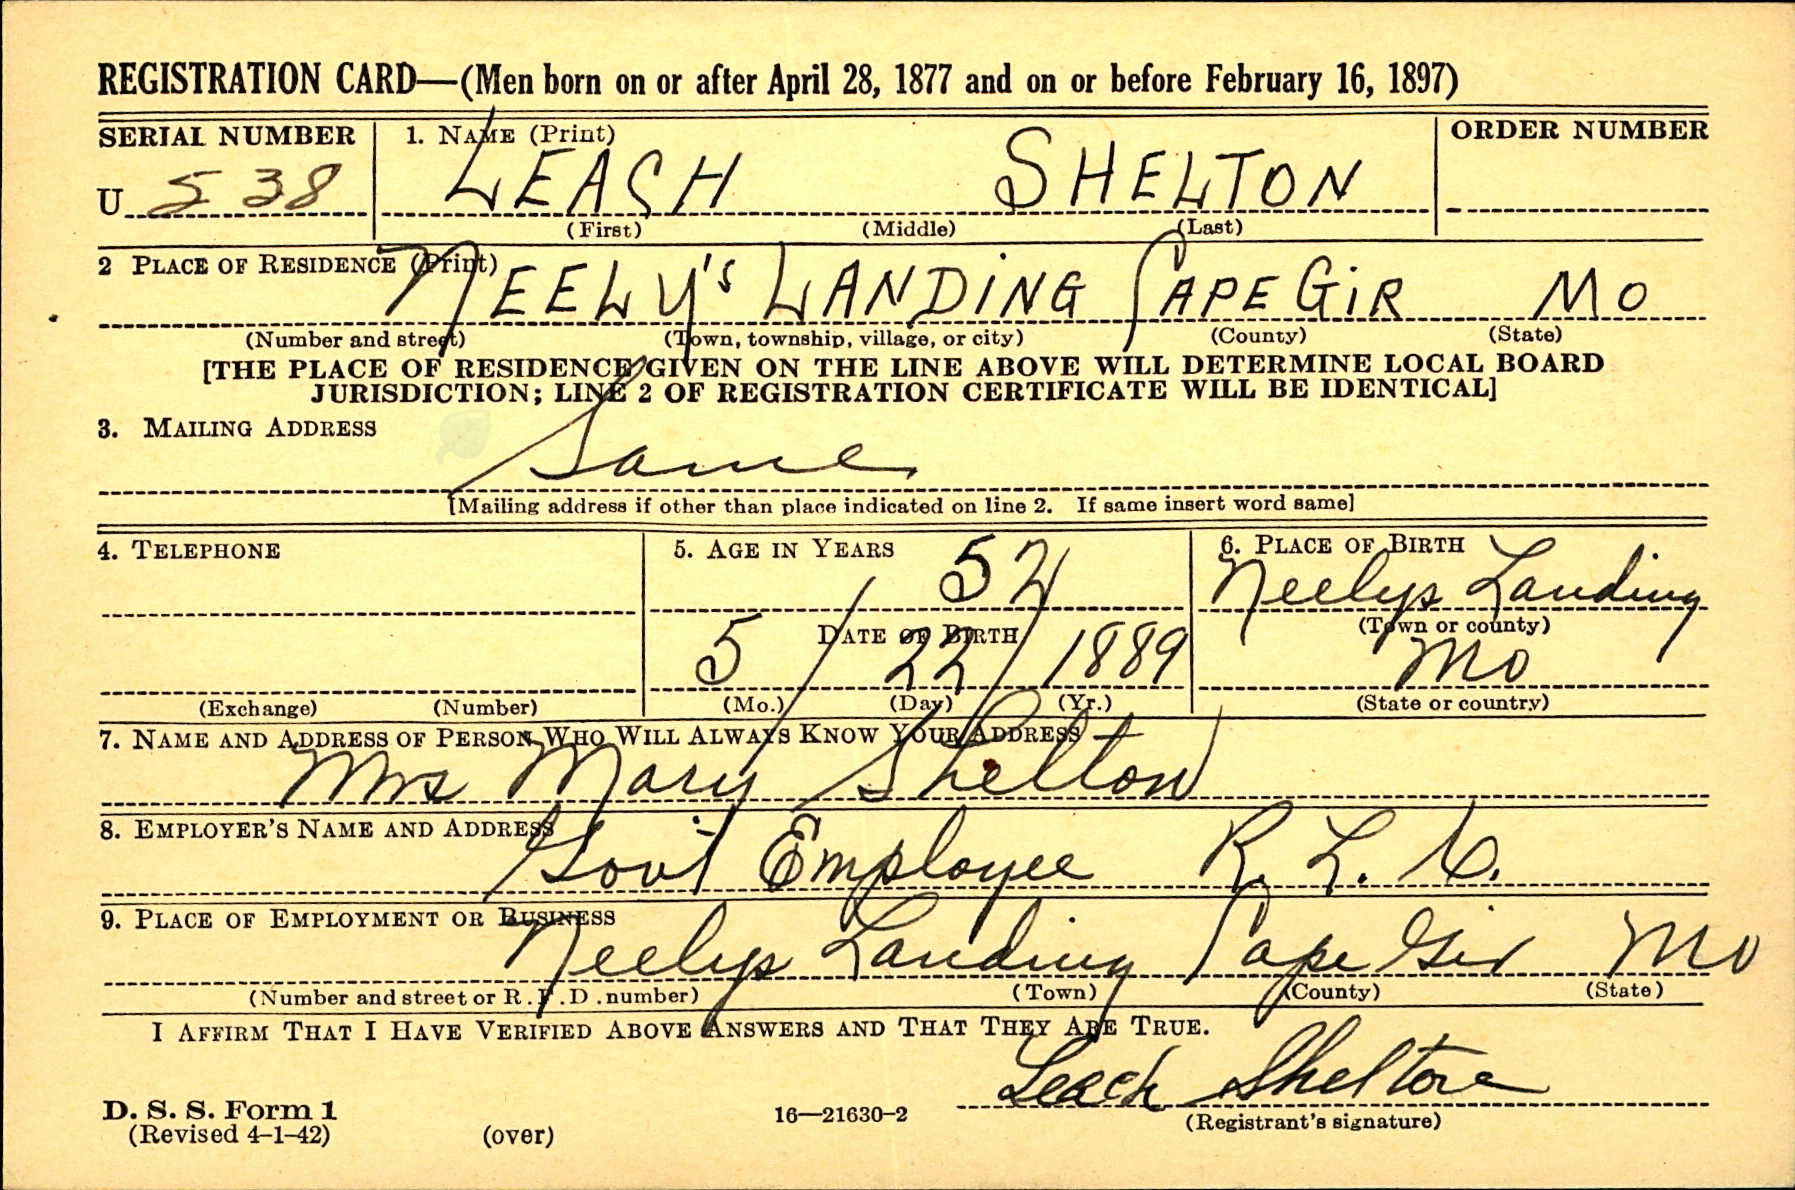 REGISTRATION CARD—(Men born on or after April 28, 1877 and on or before February 16, 1897)
SERIAL NUMBER 1. NAME (Print) ORDER NUMBER
U 538 LEACH SHELTON
(First) (Middle) (Last)
2 PLACE OF RESIDENCE (Print)
NEELY'S LANDING CAPE GIR MO
(Number and street) (Town, township, village, or city) (County) (State)
[THE PLACE OF RESIDENCE GIVEN ON THE LINE ABOVE WILL DETERMINE LOCAL BOARD
JURISDICTION; LINE 2 OF REGISTRATION CERTIFICATE WILL BE IDENTICAL]
3. MAILING ADDRESS
Same
[Mailing address if other than place indicated on line 2. If same insert word same]
4. TELEPHONE 5. AGE IN YEARS 52 6. PLACE OF BIRTH
Neelys Landing
(Town or county)
DATE OF BIRTH
5 / 22 / 1889 Mo
(Exchange) (Number) (Mo.) (Day) (Yr.) (State or country)
7. NAME AND ADDRESS OF PERSON WHO WILL ALWAYS KNOW YOUR ADDRESS
Mrs Mary Shelton
8. EMPLOYER'S NAME AND ADDRESS
Gov't Employee R. L.
9. PLACE OF EMPLOYMENT OR BUSINESS
Neelys Landing Cape Gir Mo
(Number and street or R.F.D. number) (Town) (County) (State)
I AFFIRM THAT I HAVE VERIFIED ABOVE ANSWERS AND THAT THEY ARE TRUE.
Leach Shelton
D. S. S. Form 1 16—21630-2 (Registrant's signature)
(Revised 4-1-42) (over)